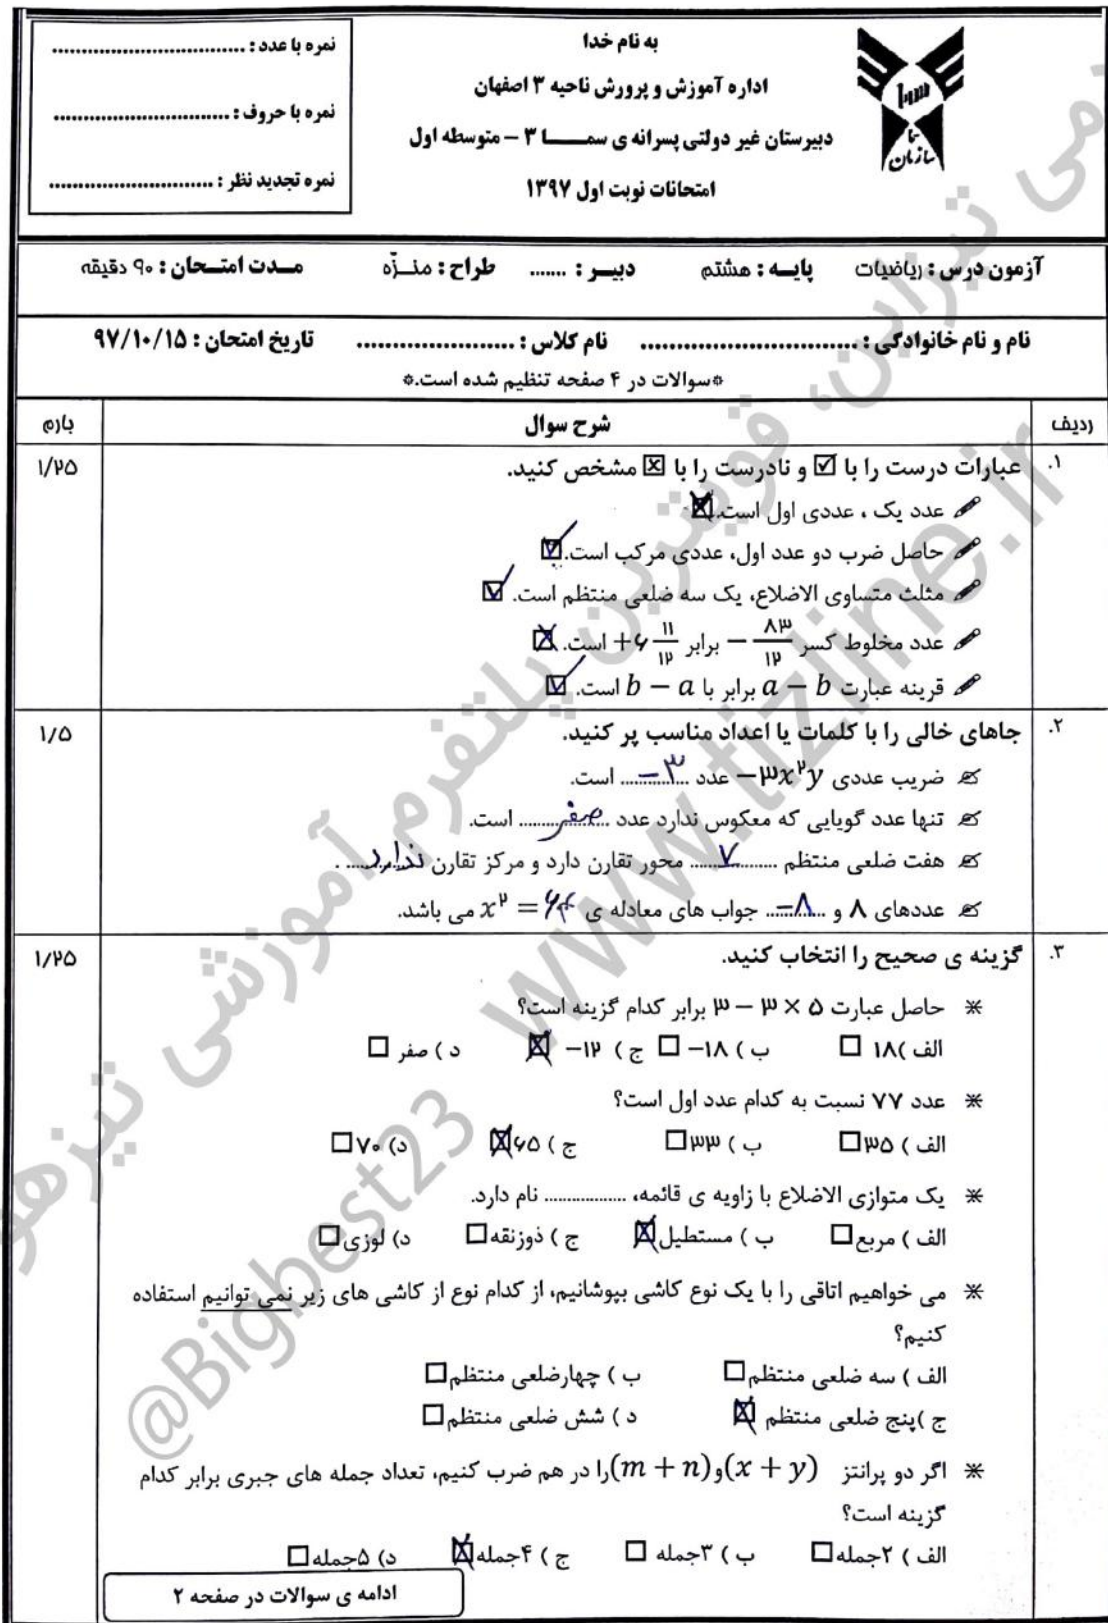 به نام خدا
اداره آموزش و پرورش ناحیه ۳ اصفهان
دبیرستان غیر دولتی پسرانه ی سمــــا ۳ – متوسطه اول
امتحانات نوبت اول ۱۳۹۷
سما
سازمان
نمره با عدد : ................................
نمره با حروف : ..............................
نمره تجدید نظر : ............................
آزمون درس : ریاضیات پایــه : هشتم دبیــر : ....... طراح : منــزّه مــدت امتــحان : ۹۰ دقیقه
نام و نام خانوادگی : .............................. نام کلاس : ...................... تاریخ امتحان : ۹۷/۱۰/۱۵
*سوالات در ۴ صفحه تنظیم شده است.*
ردیف شرح سوال بارم
۱. عبارات درست را با ☑ و نادرست را با ☒ مشخص کنید. ۱/۲۵
عدد یک ، عددی اول است. ☒
حاصل ضرب دو عدد اول، عددی مرکب است. ☑
مثلث متساوی الاضلاع، یک سه ضلعی منتظم است. ☑
عدد مخلوط کسر −۸۳/۱۲ برابر +۶ ۱۱/۱۲ است. ☒
قرینه عبارت a − b برابر با b − a است. ☑
۲. جاهای خالی را با کلمات یا اعداد مناسب پر کنید. ۱/۵
ضریب عددی −۳x²y عدد ...−۳... است.
تنها عدد گویایی که معکوس ندارد عدد ...صفر... است.
هفت ضلعی منتظم ...۷... محور تقارن دارد و مرکز تقارن ...ندارد... .
عددهای ۸ و ...−۸... جواب های معادله ی x² = ۶۴ می باشد.
۳. گزینه ی صحیح را انتخاب کنید. ۱/۲۵
※ حاصل عبارت ۳ − ۳ × ۵ برابر کدام گزینه است؟
الف )۱۸ ☐ ب ) −۱۸ ☐ ج ) −۱۲ ☒ د ) صفر ☐
※ عدد ۷۷ نسبت به کدام عدد اول است؟
الف ) ۳۵ ☐ ب ) ۳۳ ☐ ج ) ۶۵ ☒ د) ۷۰ ☐
※ یک متوازی الاضلاع با زاویه ی قائمه، ................. نام دارد.
الف ) مربع ☐ ب ) مستطیل ☒ ج ) ذوزنقه ☐ د) لوزی ☐
※ می خواهیم اتاقی را با یک نوع کاشی بپوشانیم، از کدام نوع از کاشی های زیر نمی توانیم استفاده
کنیم؟
الف ) سه ضلعی منتظم ☐ ب ) چهارضلعی منتظم ☐
ج )پنج ضلعی منتظم ☒ د ) شش ضلعی منتظم ☐
※ اگر دو پرانتز (x + y) و (m + n) را در هم ضرب کنیم، تعداد جمله های جبری برابر کدام
گزینه است؟
الف ) ۲جمله ☐ ب ) ۳جمله ☐ ج ) ۴جمله ☒ د) ۵جمله ☐
ادامه ی سوالات در صفحه ۲
قویترین پلتفرم آموزشی
www.tizline.ir
@Bigbest23